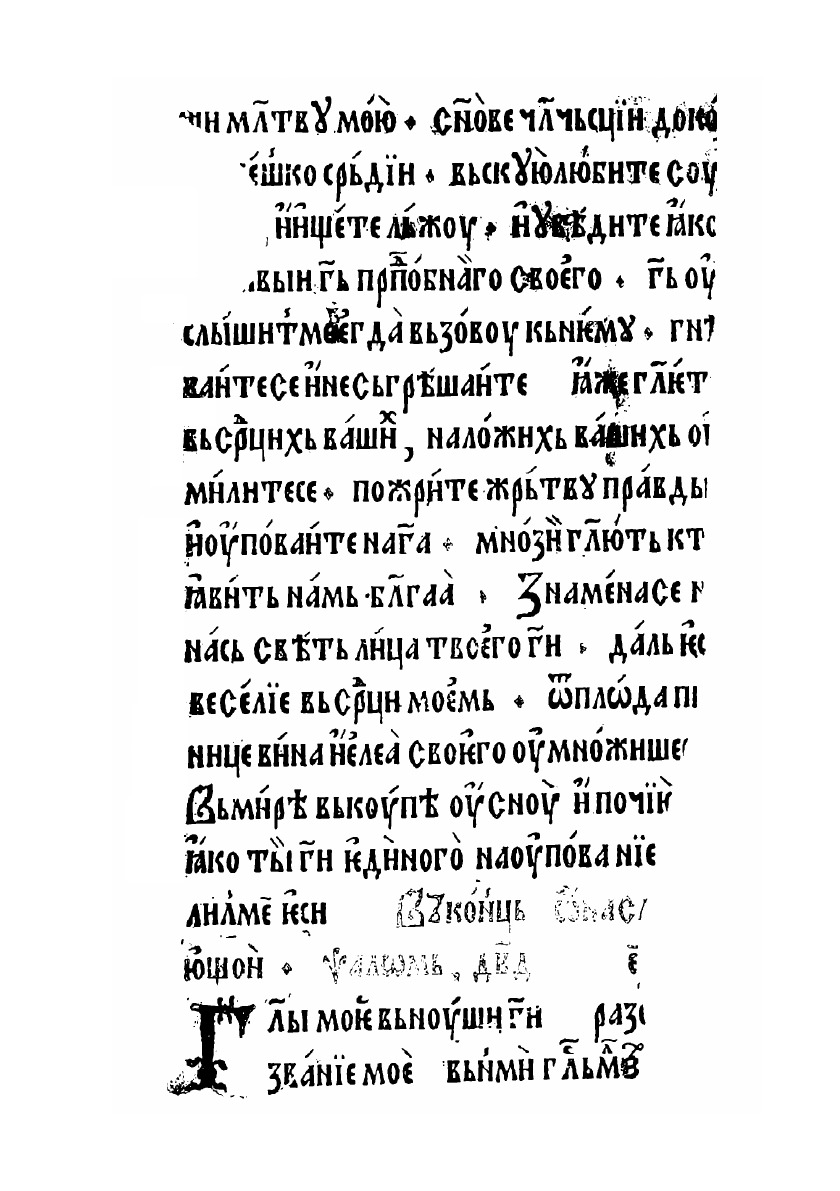 ши мл҃твꙋ мою̀ · сн҃ове чл҃чьсцїи доко
е́шко срь́дїи · вьскꙋю̀ люби́те соу
и҆ище́те лъ́жоу · и҆ ꙋвѣ́дите ꙗ҆ко
вы гь҃ прпⷣо́бнаго своего · гь҃ оу
слы́шит ме егда̀ вьзо́воу кь нѥ́мꙋ · гнѣ
ваи́те се и҆ не сьгрѣшаи́те ꙗ҆же гл҃ѥт
вь срⷣцихь ва́шиⷯ, на ло́жихь ва́шихь оу
ми́лите се · пожри́те жрь́твꙋ пра́вды
и҆ оупо́ваи́те на га҃ · мно́зи гл҃ю́ть кт
ꙗ҆ви́ть на́мь · бл҃гаа̀ · Знаме́на се н
на́сь свѣ́ть ли́ца твоѥ́го гн҃и · да́ль ѥс
весе́лїе вь срⷣци мое́мь · ѿ плѡ́да пш
нице ви́на и҆ е́леа̀ своѥго оу҆мно́жише
Вь ми́рѣ вькоу́пѣ оу҆сноу̀ и҆ почїѝ
ꙗ҆ко ты̀ гн҃и ѥди́ного̀ на оу҆по́ванїе
лилме ѥси Вꙋ ко́ньць ѿ нас
ю҆щои · Ѱаломь, дв҃д е҃
Гл҃ы моѥ вьноу́ши гн҃и разꙋ
зва́нїе моѐ вьнми̇̀ гл҃ь м҃лтв